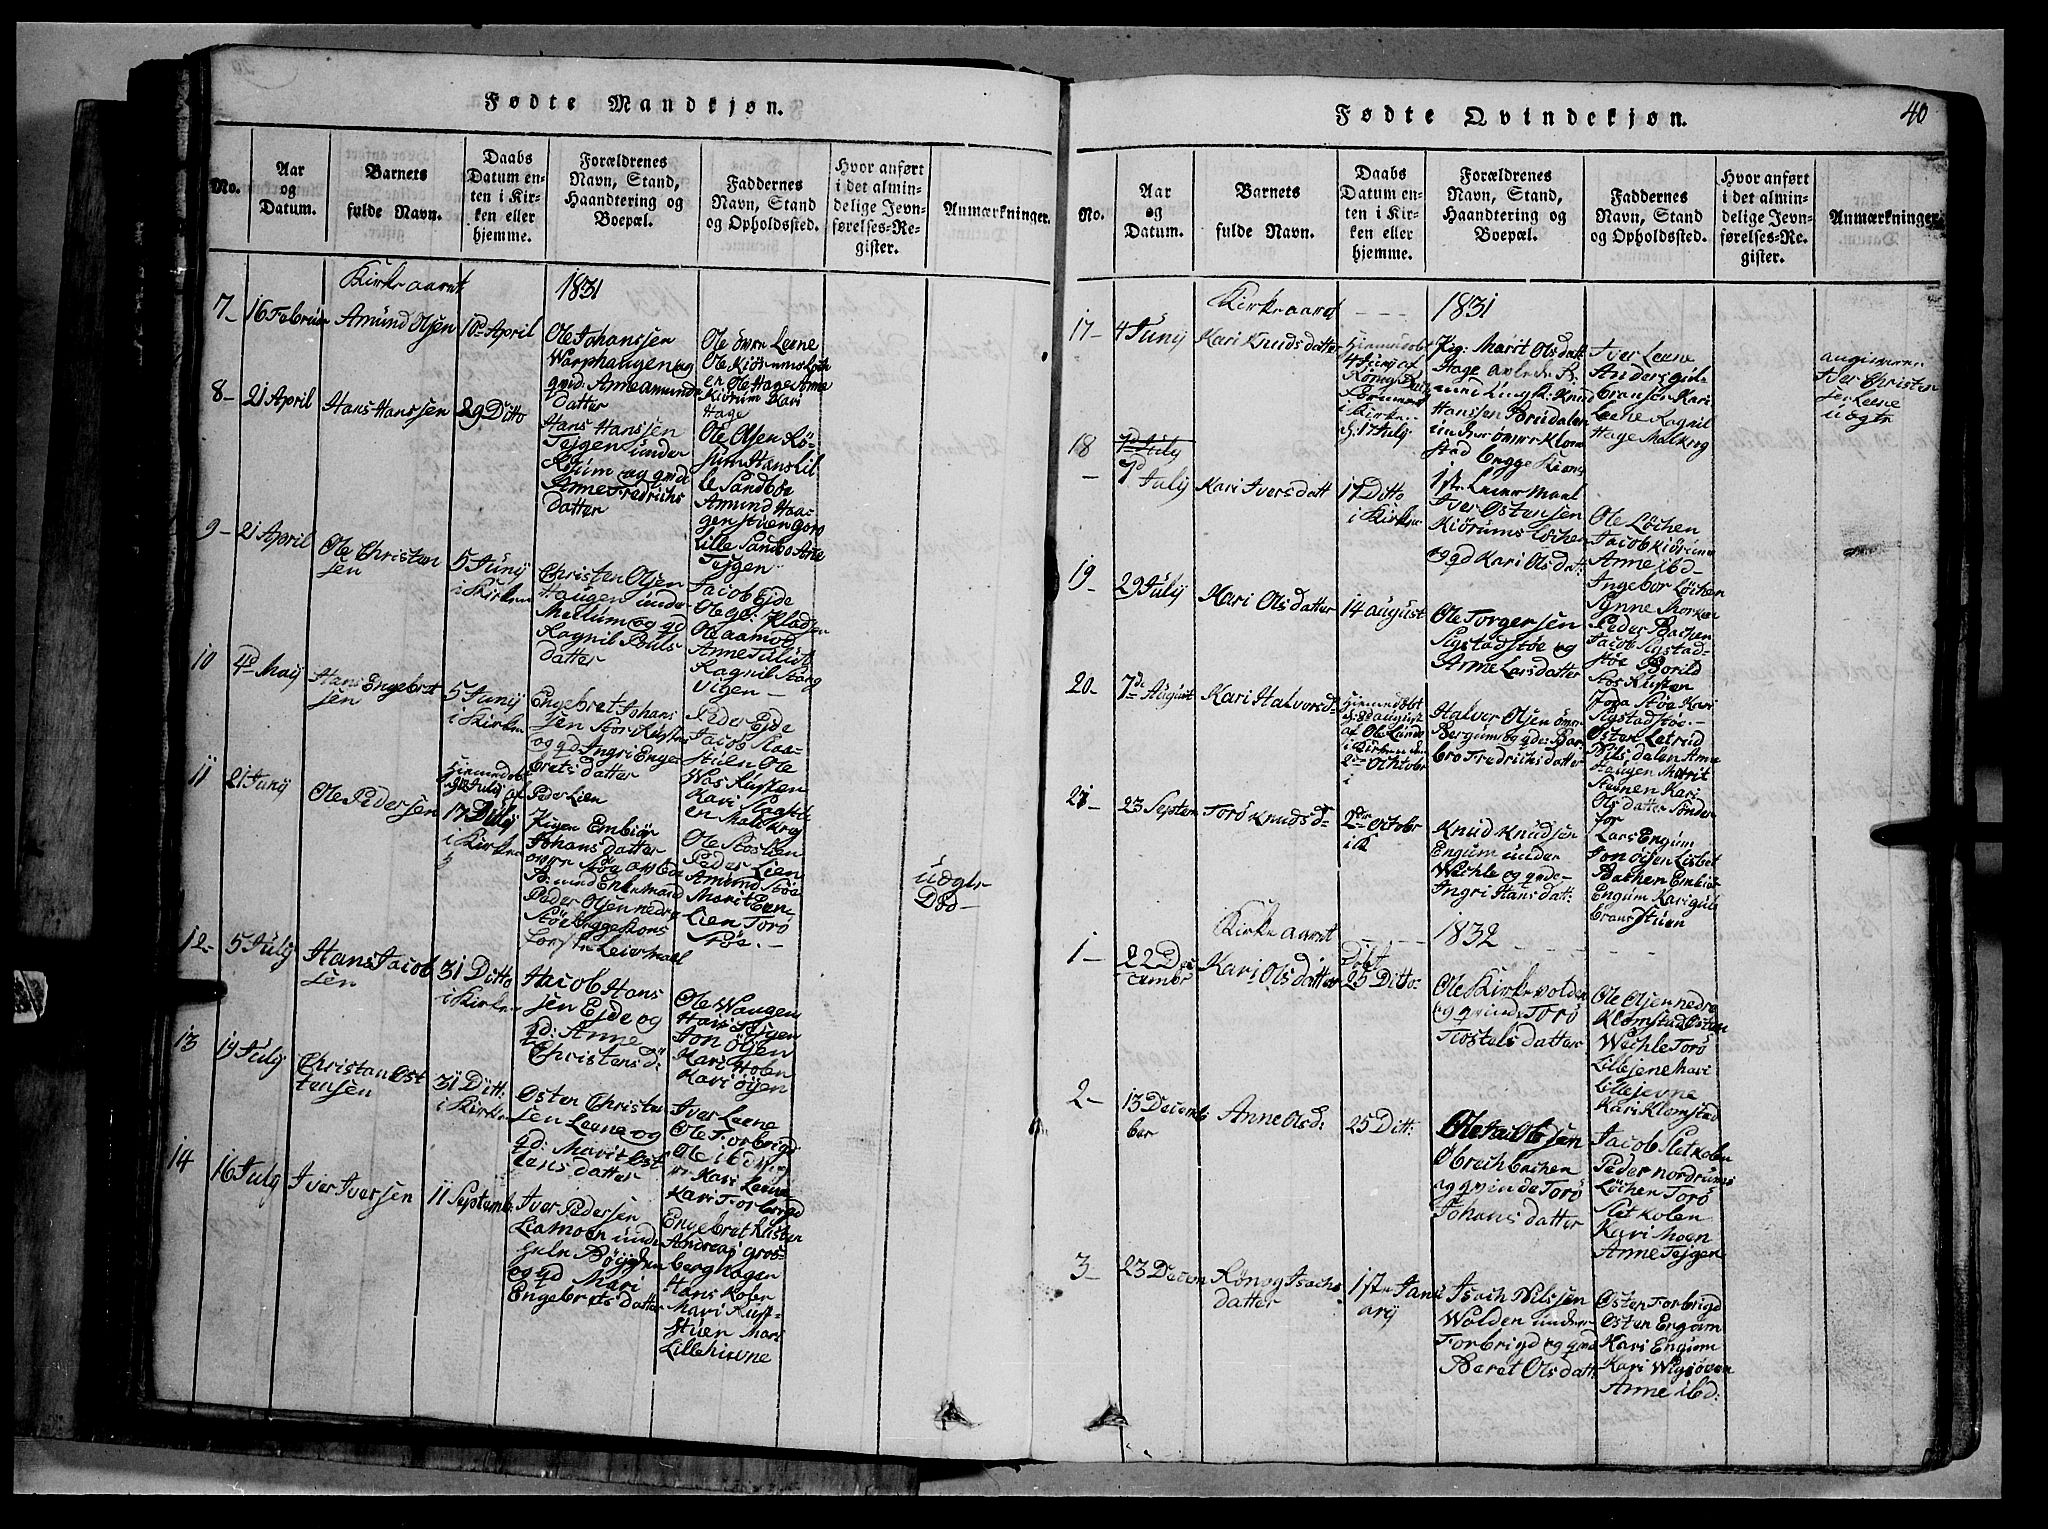 Fødte Mandkjøn.
No.
Aar
og
Datum.
Barnets
fulde Navn.
Daabs
Datum en-
ten i Kir-
ken eller
hjemme.
Forældrenes
Navn, Stand,
Haandtering og
Boepæl.
Faddernes
Navn, Stand
og Opholdssted.
Hvor anført
i det almin-
delige Jevn-
førelses-Re-
gister.
Anmærkninger.
Kirke aaret
1831
7-
16 Februar
Amund Olsen
10de April
Ole Johanssen
Warphaugen og
qvid: Anne Amunds
datter
Ole övre Leene
Ole Kiörums Löch
en Ole Hage Anne
Kiörum Kari
Hage
8-
21 April
Hans Hanssen
29 Ditto
Hans Hanssen
Tejgen under
og qvd
Anne Fredrichs
datter
Ole Olsen Rö-
sum Hans Lil
le Sandböe
Amund Haa-
genstuen
Lille Sandbo Anne
Tejgen
9-
21 April
Ole Christen
sen
5 Juny
i Kirken
Christen Olsen
Haugen under
Mellum og qd
Ragnil Pouls
datter
Jacob Ejde
Ole
Ole Aamod
Anne
Ragnil
vigen -
10
4de May
Hans Engebret
sen
5 Juny
i Kirken
Engebret Johans
sen Stor Rusten
og qd Ingri Enge
bretsdatter
Peder Ejde
Jacob Slaa-
stuen Ole
Was Rusten
Kari
en Malekrog
11
21 Juny
Ole Pedersen
Hiemmedöbt
Peder Lien
17 July
i Kirken
Pigen Embiör
Johansdatter
övre Stöe
Peder Olsen nedre
Stöe begge
Leiermaal
Ole
Peder Lien
Amund Stöe
Marit Even
Lien Torö
Stöe. -
uægte
Död -
12-
5 July
Hans Jacob
sen
31 Ditto
i Kirken
Jacob Hans
sen Ejde og
qd: Anne
Christensd:
Ole Wangen
Hans Tejgen
Jon Öyen
Kari Holen
Kari Öyen
13
19 July
Christian Ost
tensen
31 Ditt:
i Kirken
Osten Christen
sen Leene og
qd: Marit Ost
tensdatter
Iver Leene
Ole Forbrigd
Ole ibd
Kari Leene
Kari Forbrigd
14
16 July
Iver Iversen
11 Septemb:
Iver Pedersen
Liamoen under
Bögden
og qd Mari
Engebretsdatter
Engebret Rusten
Andreas Gros-
berghagen
Hans Kolen
Mari Rust-
stuen Mari
Lillehievne
40
Fødte Qvindekjøn.
No.
Aar
og
Datum.
Barnets
fulde Navn.
Daabs
Datum en-
ten i Kir-
ken eller
hjemme.
Forældrenes
Navn, Stand,
Haandtering og
Boepæl.
Faddernes
Navn, Stand
og Opholdssted.
Hvor anført
i det almin-
delige Jevn-
førelses-Re-
gister.
Anmærkninger.
Kirke aaret
1831
17-
4 Juny
Kari Knudsdatter
Hiemmedöbt
4 Juny af
i Kirken
d: 17 July
Pig: Marit Olsdatt
Hage
med Ungk: Knud
Hanssen Brudalen
under övre Klom
stad begge
1ste Leiermaal
Iver Leene
Anders Gul-
bransen Kari
Leene Ragnil
Hage Malekrog
angiveren
Iver Christen
sen Leene
uægte
18
-
7d July
Kari Iversdatt
17 Ditto
i Kirken
Iver Ostensen
Kiörums Löchen
og qd Kari Olsdat:
Ole Löchen
Jacob Kiörum
Anne ibd-
Ingebor Löchen
Synne Morken
19-
29 July
Kari Olsdatter
14 august
Ole Torgersen
Sigstadstöe og
Anne Larsdatter
Peder Bachen
Jacob Sigstad-
stöe Borild
Stor Rusten
Stöe Kari
Sigstadstöe. -
20-
7de August
Kari Halvorsd-
Hiemmedöbt
af Ole Lunde
i Kirken den
2den Ochtobr
Halver Olsen övre
Bergum og qde: Bar
bro Fredrichsdatter
Osten Letrud
Nilsdalen Anne
Haugen Marit
Stevnen Kari
Olsdatter Sönder
for
21-
23 Septem
Torö Knudsd-
2den Octobr
i K
Knud Knudsen
Engum under
Wechle og qvde-
Ingri Hansdatt:
Lars Engum
Jon Öyen Lisbet
Bachen Embiör
Engum Kari Gul-
branstuen
Kirke aaret
1832
1-
22 De-
cembr
Kari Olsdatter
Döbt
25 Ditto-
Ole Kirkevolden
og qvinde Torö
Tostelsdatter
Ole Olsen nedre
Klomstad Osten
Wechle Torö
Lillejene Mari
Lillejevne
Kari Klomstad
2-
13 Decem
ber
Anne Olsd:
25 Ditt:
Ole Olsen
Öbrechbachen
og qvinde Torö
Johansdatter
Jacob Sletkolen
Peder Nordrums
Löchen Torö
Sletkolen
Kari Moen
Anne Tejgen
3-
23 Decem
Rönog Isachs
datter
1ste Janu
ary
Isach Nilssen
Wolden under
Forbrigd og qvd
Beret Olsdatt:
Osten Forbrigd
Osten Engum
Kari Engum
Kari Wigsöven
Anne ibd: